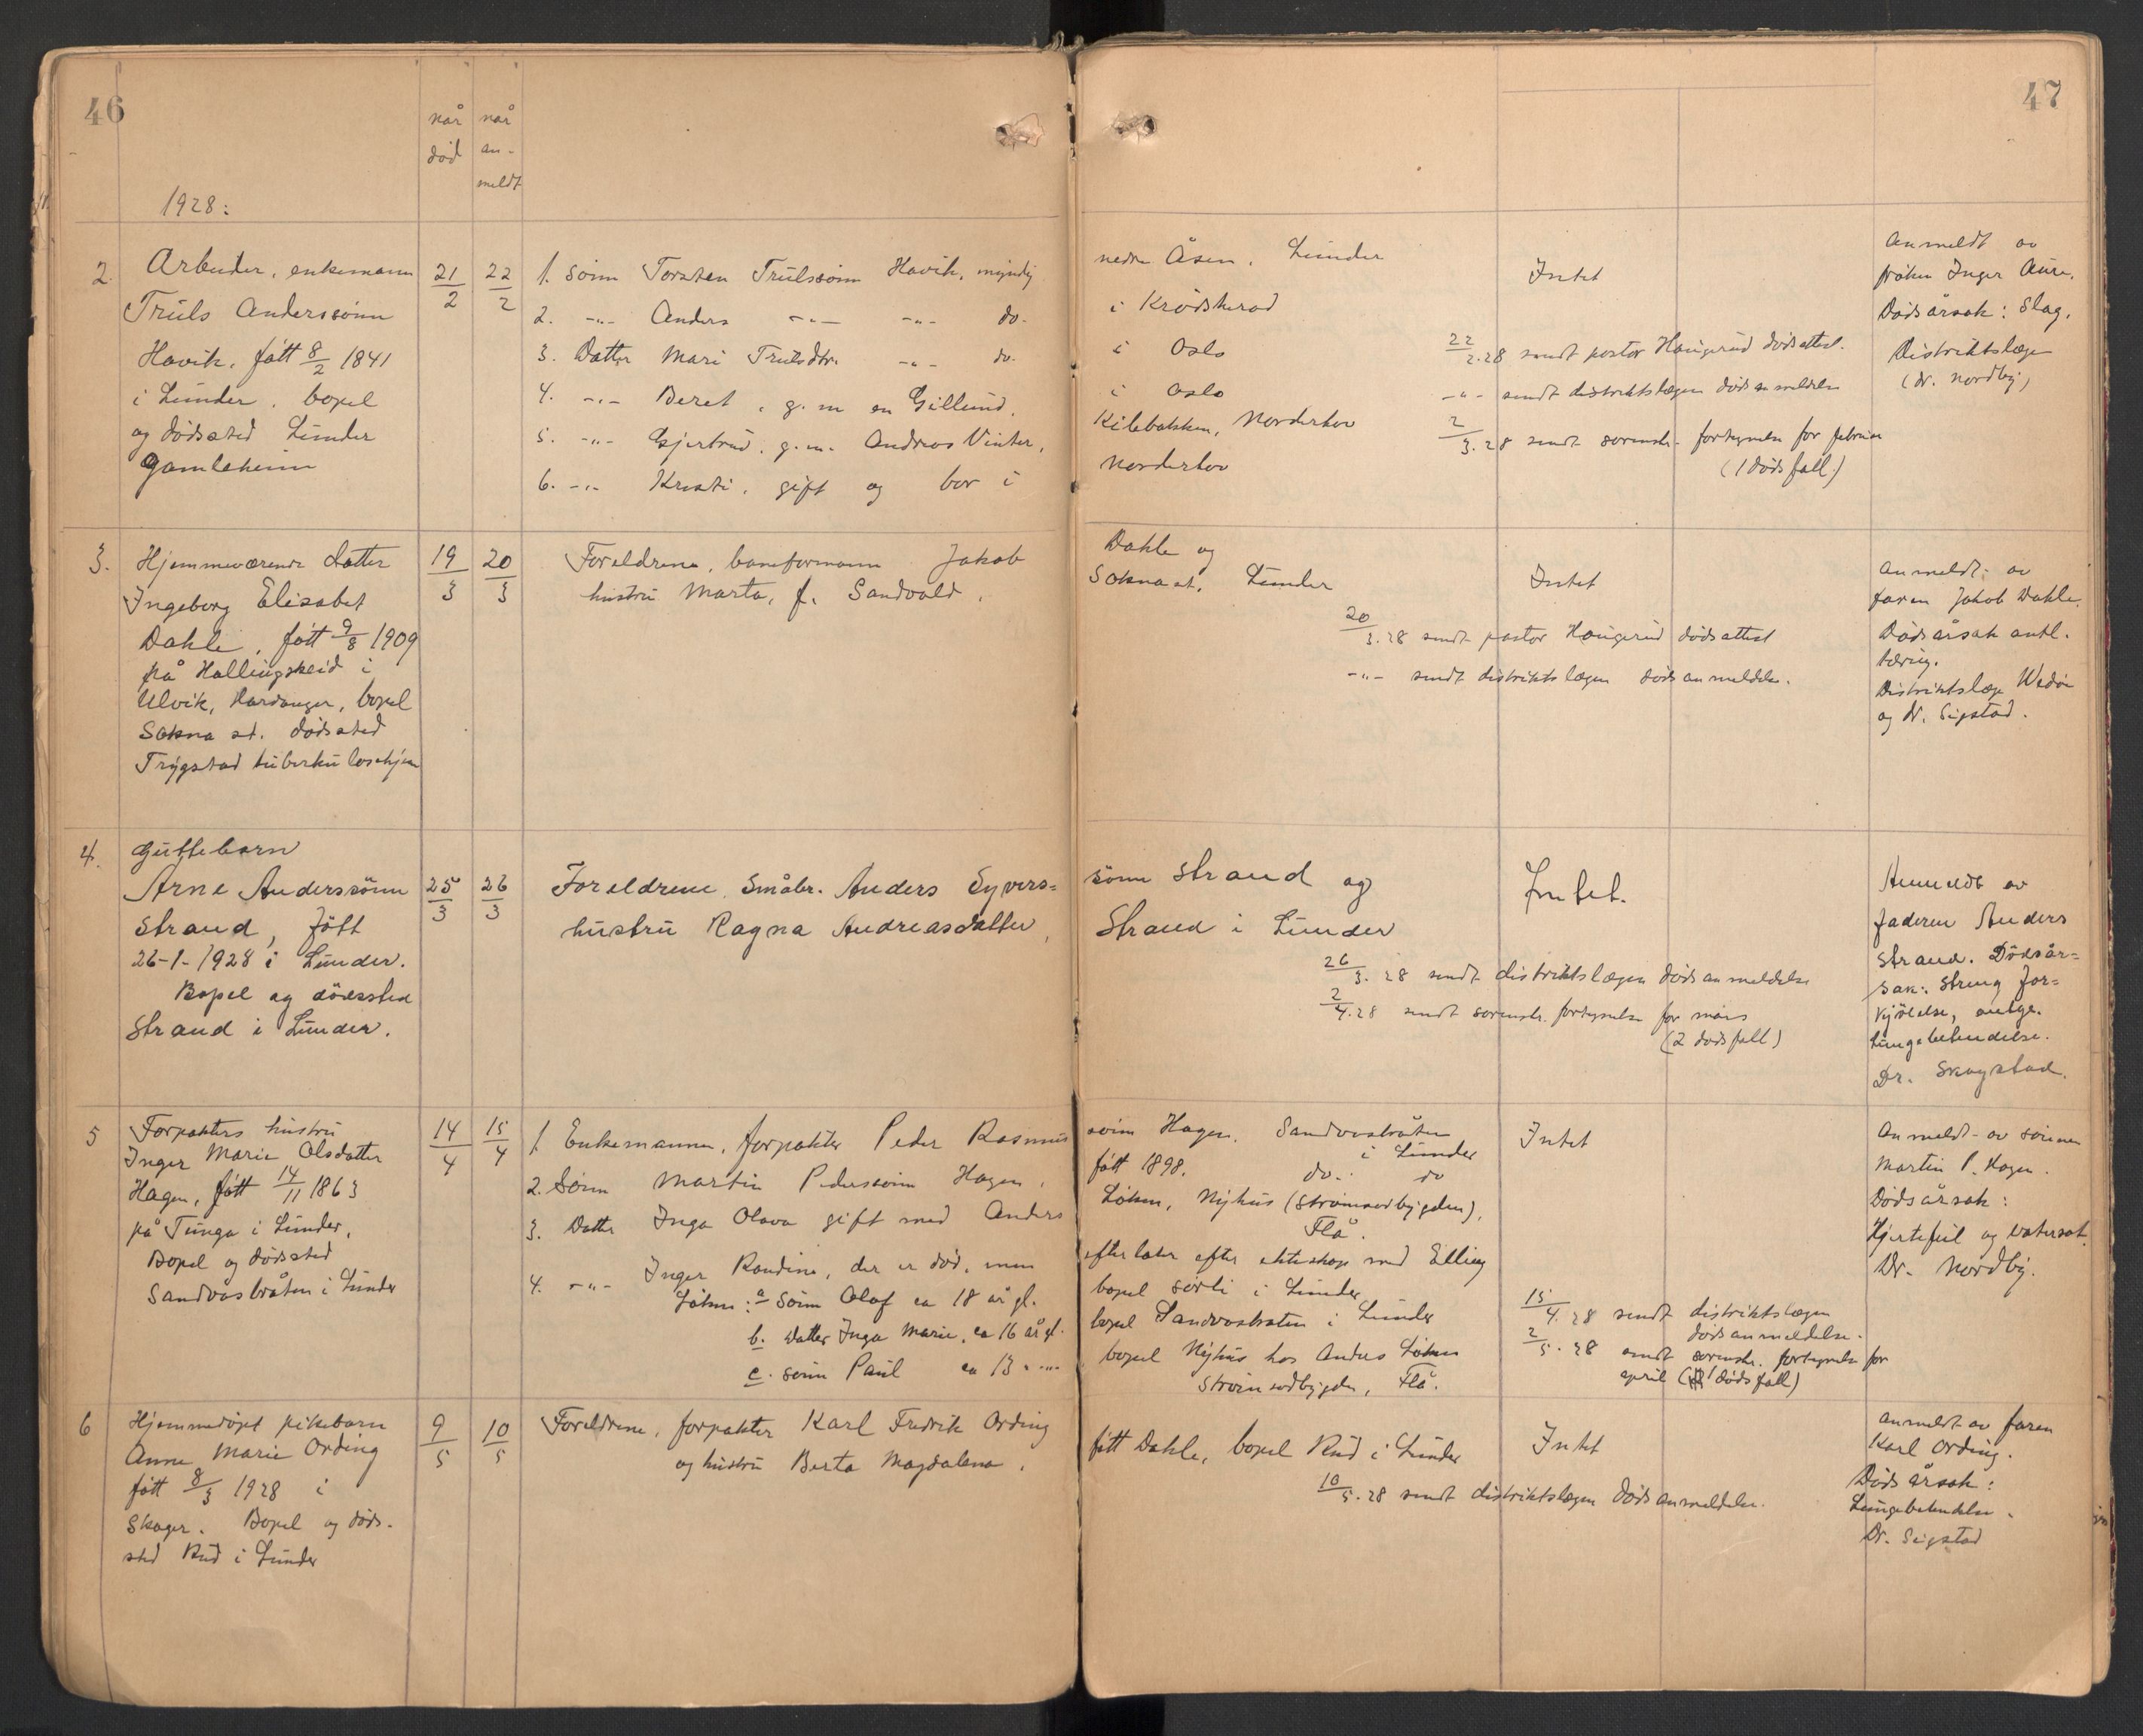 46
når
død
når
an-
meldt
1928:
2. Arbeider, enkemann
Truls Anderssønn
Havik, født 8/2 1841
i Lunder, bopel
og dødssted Lunder
Gamleheim
21/2
22/2
1. Sønn Torsten Trulssønn Havik, myndig
2. -"- Anders -"- -"- do.
3. Datter Mari Trulsdtr. -"- do.
4. -"- Beret, g. m. en Gillund,
5. -"- Gjertrud, g. m. Andreas Vinter,
6. -"- Kristi, gift og bor i
3. Hjemmeværende datter
Ingeborg Elisabet
Dahle, født 9/8 1909
på Hallingskeid i
Ulvik, Hardanger, bopel
Sokna st. dødssted
Trygstad tuberkulosehjem
19/3
20/3
Foreldrene, baneformann Jakob
hustru Marta, f. Sandvold,
4. Guttebarn
Arne Anderssønn
Strand, født
26-1-1928 i Lunder.
Bopel og dødssted
Strand i Lunder.
25/3
26/3
Foreldrene Småbr. Anders Syvers=
hustru Ragna Andreasdatter,
5 Forpakters hustru
Inger Marie Olsdatter
Hagen, født 14/11 1863
på Tunga i Lunder,
Bopel og dødssted
Sandvasbråten i Lunder
14/4
15/4
1. Enkemannen, forpakter Peder Rasmus
2. Sønn Martin Pederssønn Hagen,
3. Datter Inga Olava gift med Anders
4. -"- Inger Randine, der er død, men
Løken: a Sønn Olaf ca 18 år gl.
b. datter Inga Marie, ca 16 år gl.
c. sønn Paul ca 13 -"-
6 Hjemmedøpt pikebarn
Anne Marie Ording
født 8/3 1928 i
Skoger. Bopel og døds-
sted Rud i Lunder
9/5
10/5
Foreldrene, forpakter Karl Fredrik Ording
og hustru Berta Magdalena,
47
nedre Åsen, Lunder
i Krødsherad
i Oslo
i Oslo
Kilebakken, Norderhov
Norderhov
Intet
22/2.28 sendt pastor Haugerud dødsattest.
-"- sendt distriktslægen dødsanmeldelse
2/3.28 sendt sorenskr. fortegnelse for februar
(1 dødsfall)
Anmeldt av
frøken Inger Aure.
Dødsårsak: Slag.
Distriktslæge
(dr. Nordby)
Dahle og
Sokna st. Lunder
Intet
20/3.28 sendt pastor Haugerud dødsattest
-"- sendt distriktslægen dødsanmeldelse.
Anmeldt av
faren Jakob Dahle.
Dødsårsak antl.
tæring.
Distriktslæge
og dr. Sigstad.
sønn Strand og
Strand i Lunder
Intet.
26/3.28 sendt distriktslægen dødsanmeldelse
2/4.28 sendt sorenskr. fortegnelse for mars
(2 dødsfall)
Anmeldt av
faderen Anders
Strand. Dødsår=
sak: Streng for=
kjølelse, antge.
Lungebetendelse.
Dr. Skogstad.
sønn Hagen, Sandvasbråten
i Lunder
født 1898. do. do
Løken, Nyhus (Strømsodbygden),
Flå.
efterlater efter ekteskap med Elling
bopel Sørli i Lunder
bopel Sandvasbråten i Lunder
bopel Nyhus hos Anders Løken
Strømsodbygden, Flå.
Intet
15/4.28 sendt distriktslægen
dødsanmeldelse.
2/5.28 sendt sorenskr. fortegnelse for
april (1 dødsfall)
Anmeldt av sønnen
Martin P. Hagen.
Dødsårsak:
Hjertefeil og vatersot.
Dr. Nordby.
født Dahle, bopel Rud i Lunder
Intet
10/5.28 sendt distriktslægen dødsanmeldelse.
Anmeldt av faren
Karl Ording.
Dødsårsak:
Lungebetendelse.
Dr. Sigstad